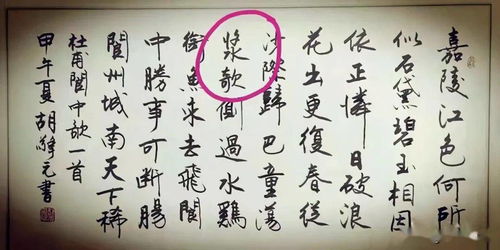 嘉陵江色何所
似石黛碧玉相因
依正憐日破浪
花出更復春從
沙際歸巴童蕩
漿欹側過水鷄
銜魚來去飛閬
中勝事可斷腸
閬州城南天下稀
杜甫閬中歌一首
甲午夏胡絳元書